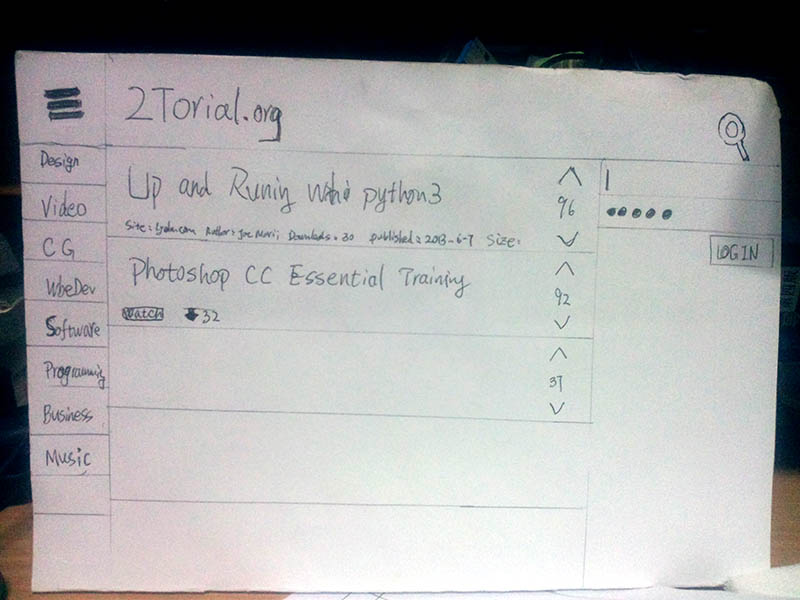 2Torial.org
Design
Video
CG
WbeDev
Software
Programming
Business
Music
Up and Runing python3
Site: Author: Joe Downloads: 30 published: 2013-6-7 Size:
96
Photoshop CC Essential Training
watch 32
92
37
LOGIN